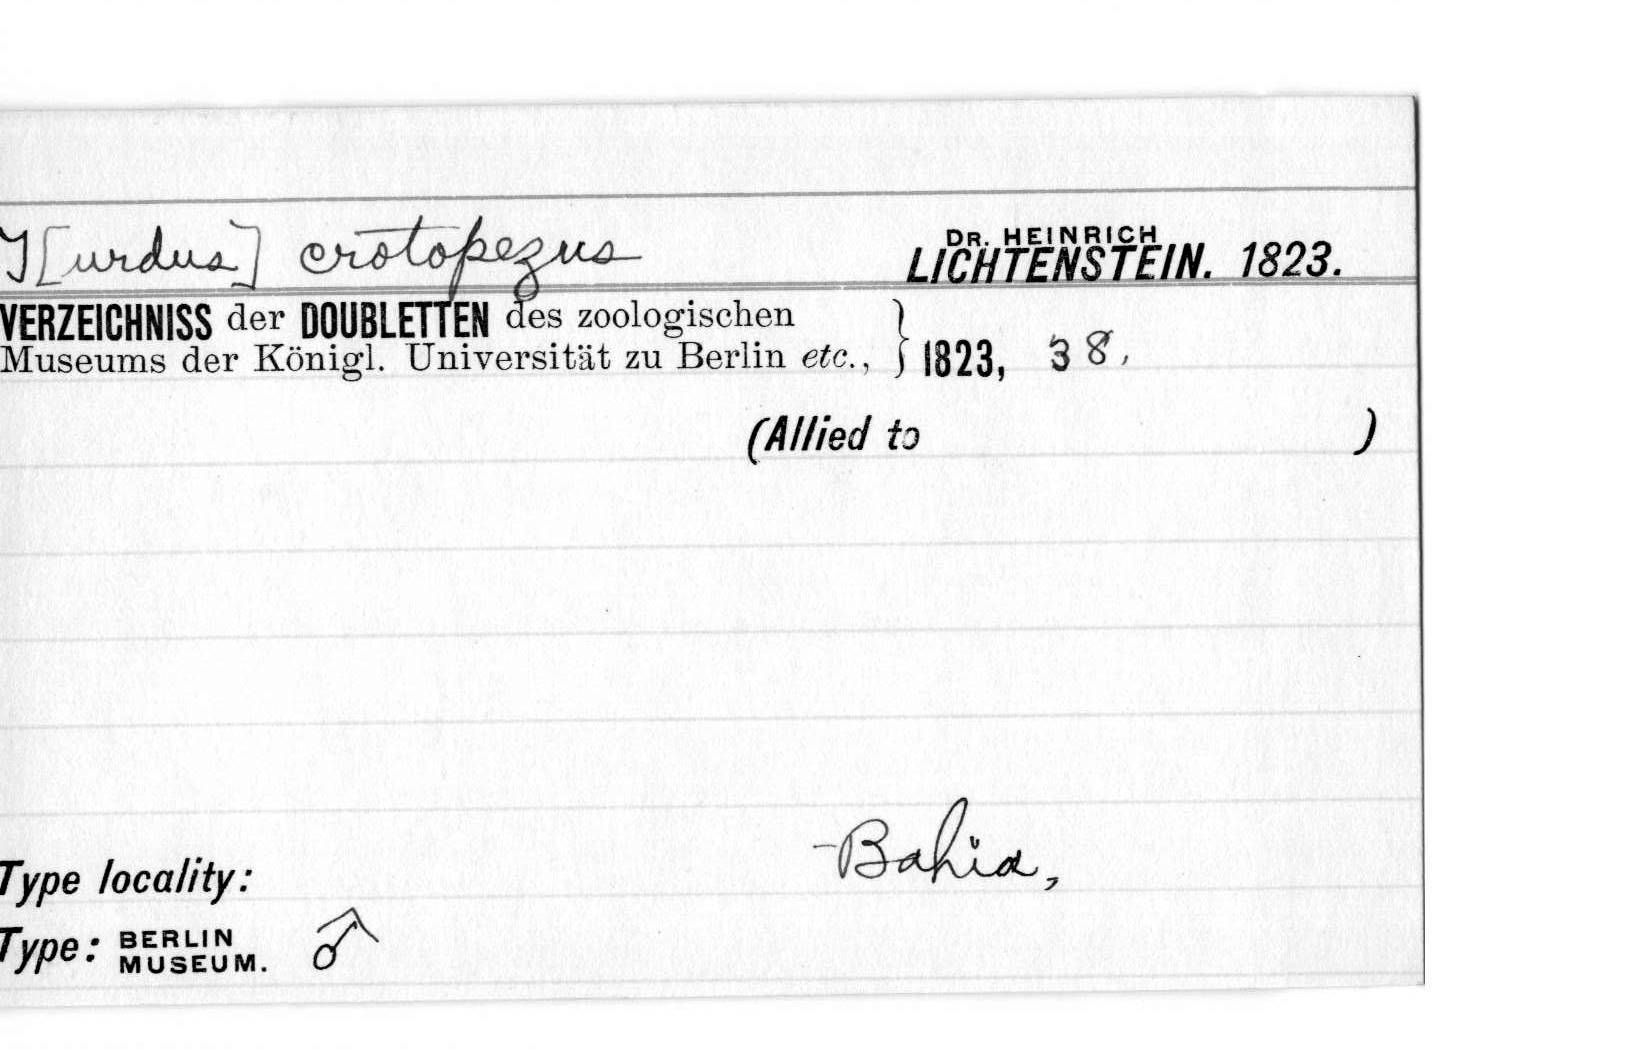 T[urdus] crotopezus
DR. HEINRICH
LICHTENSTEIN. 1823.
VERZEICHNISS der DOUBLETTEN des zoologischen
Museums der Königl. Universität zu Berlin etc., } 1823, 38,
(Allied to )
Bahia,
Type locality:
Type: BERLIN
MUSEUM. ♂